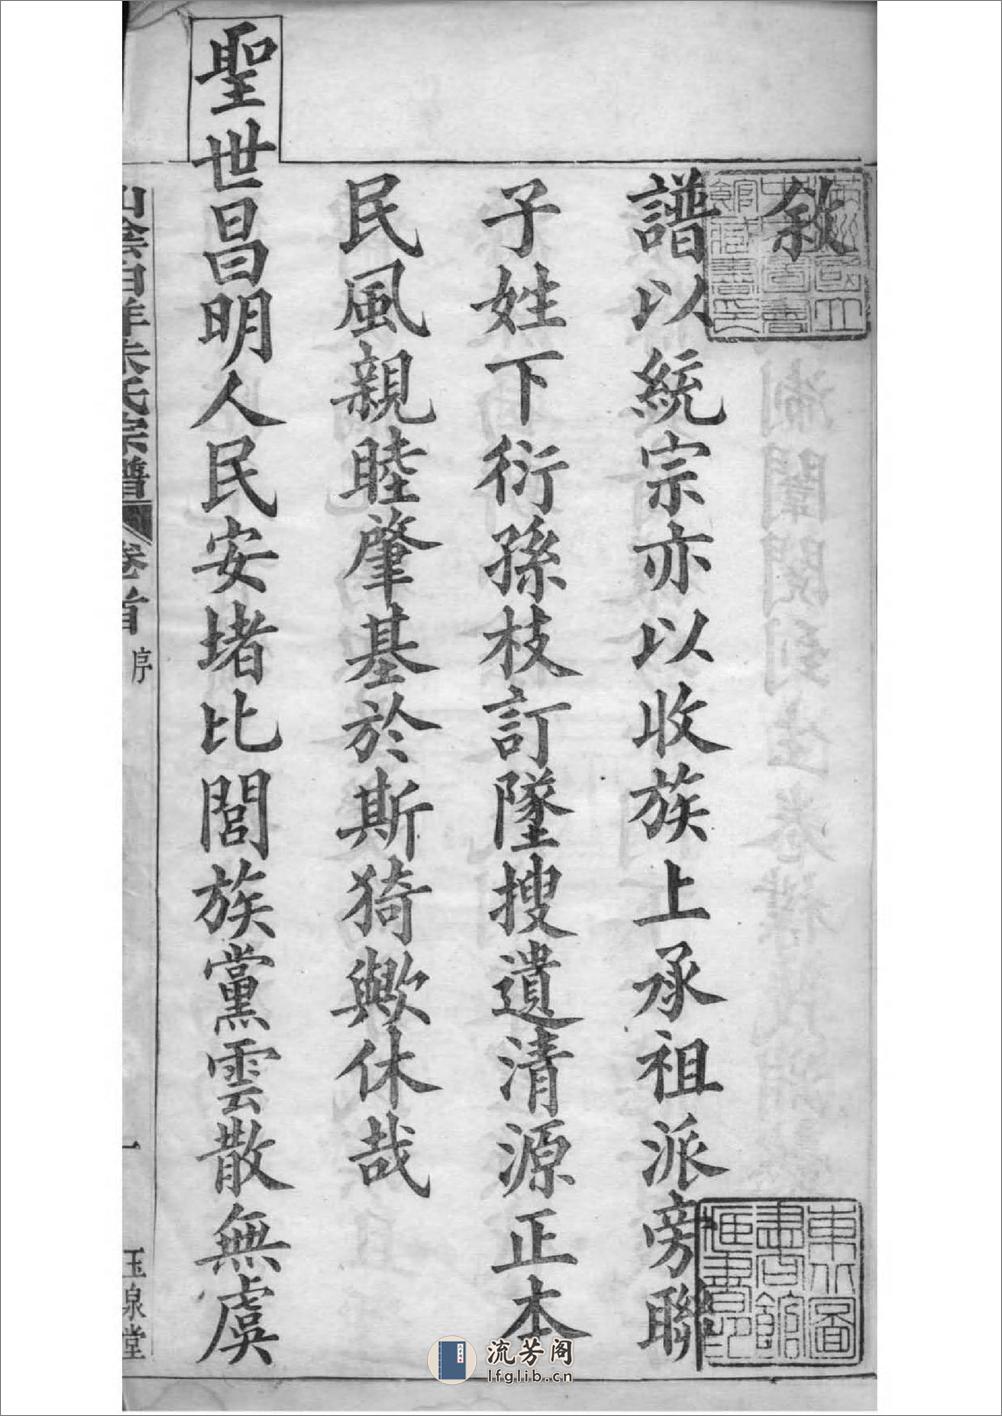 敘
譜以統宗亦以收族上承祖派旁聯
子姓下衍孫枝訂墜搜遺清源正本
民風親睦肇基於斯猗歟休哉
聖世昌明人民安堵比閭族黨雲散無虞
山陰白洋朱氏宗譜 卷首 序 一 玉泉堂
流芳阁
lfglib.cn